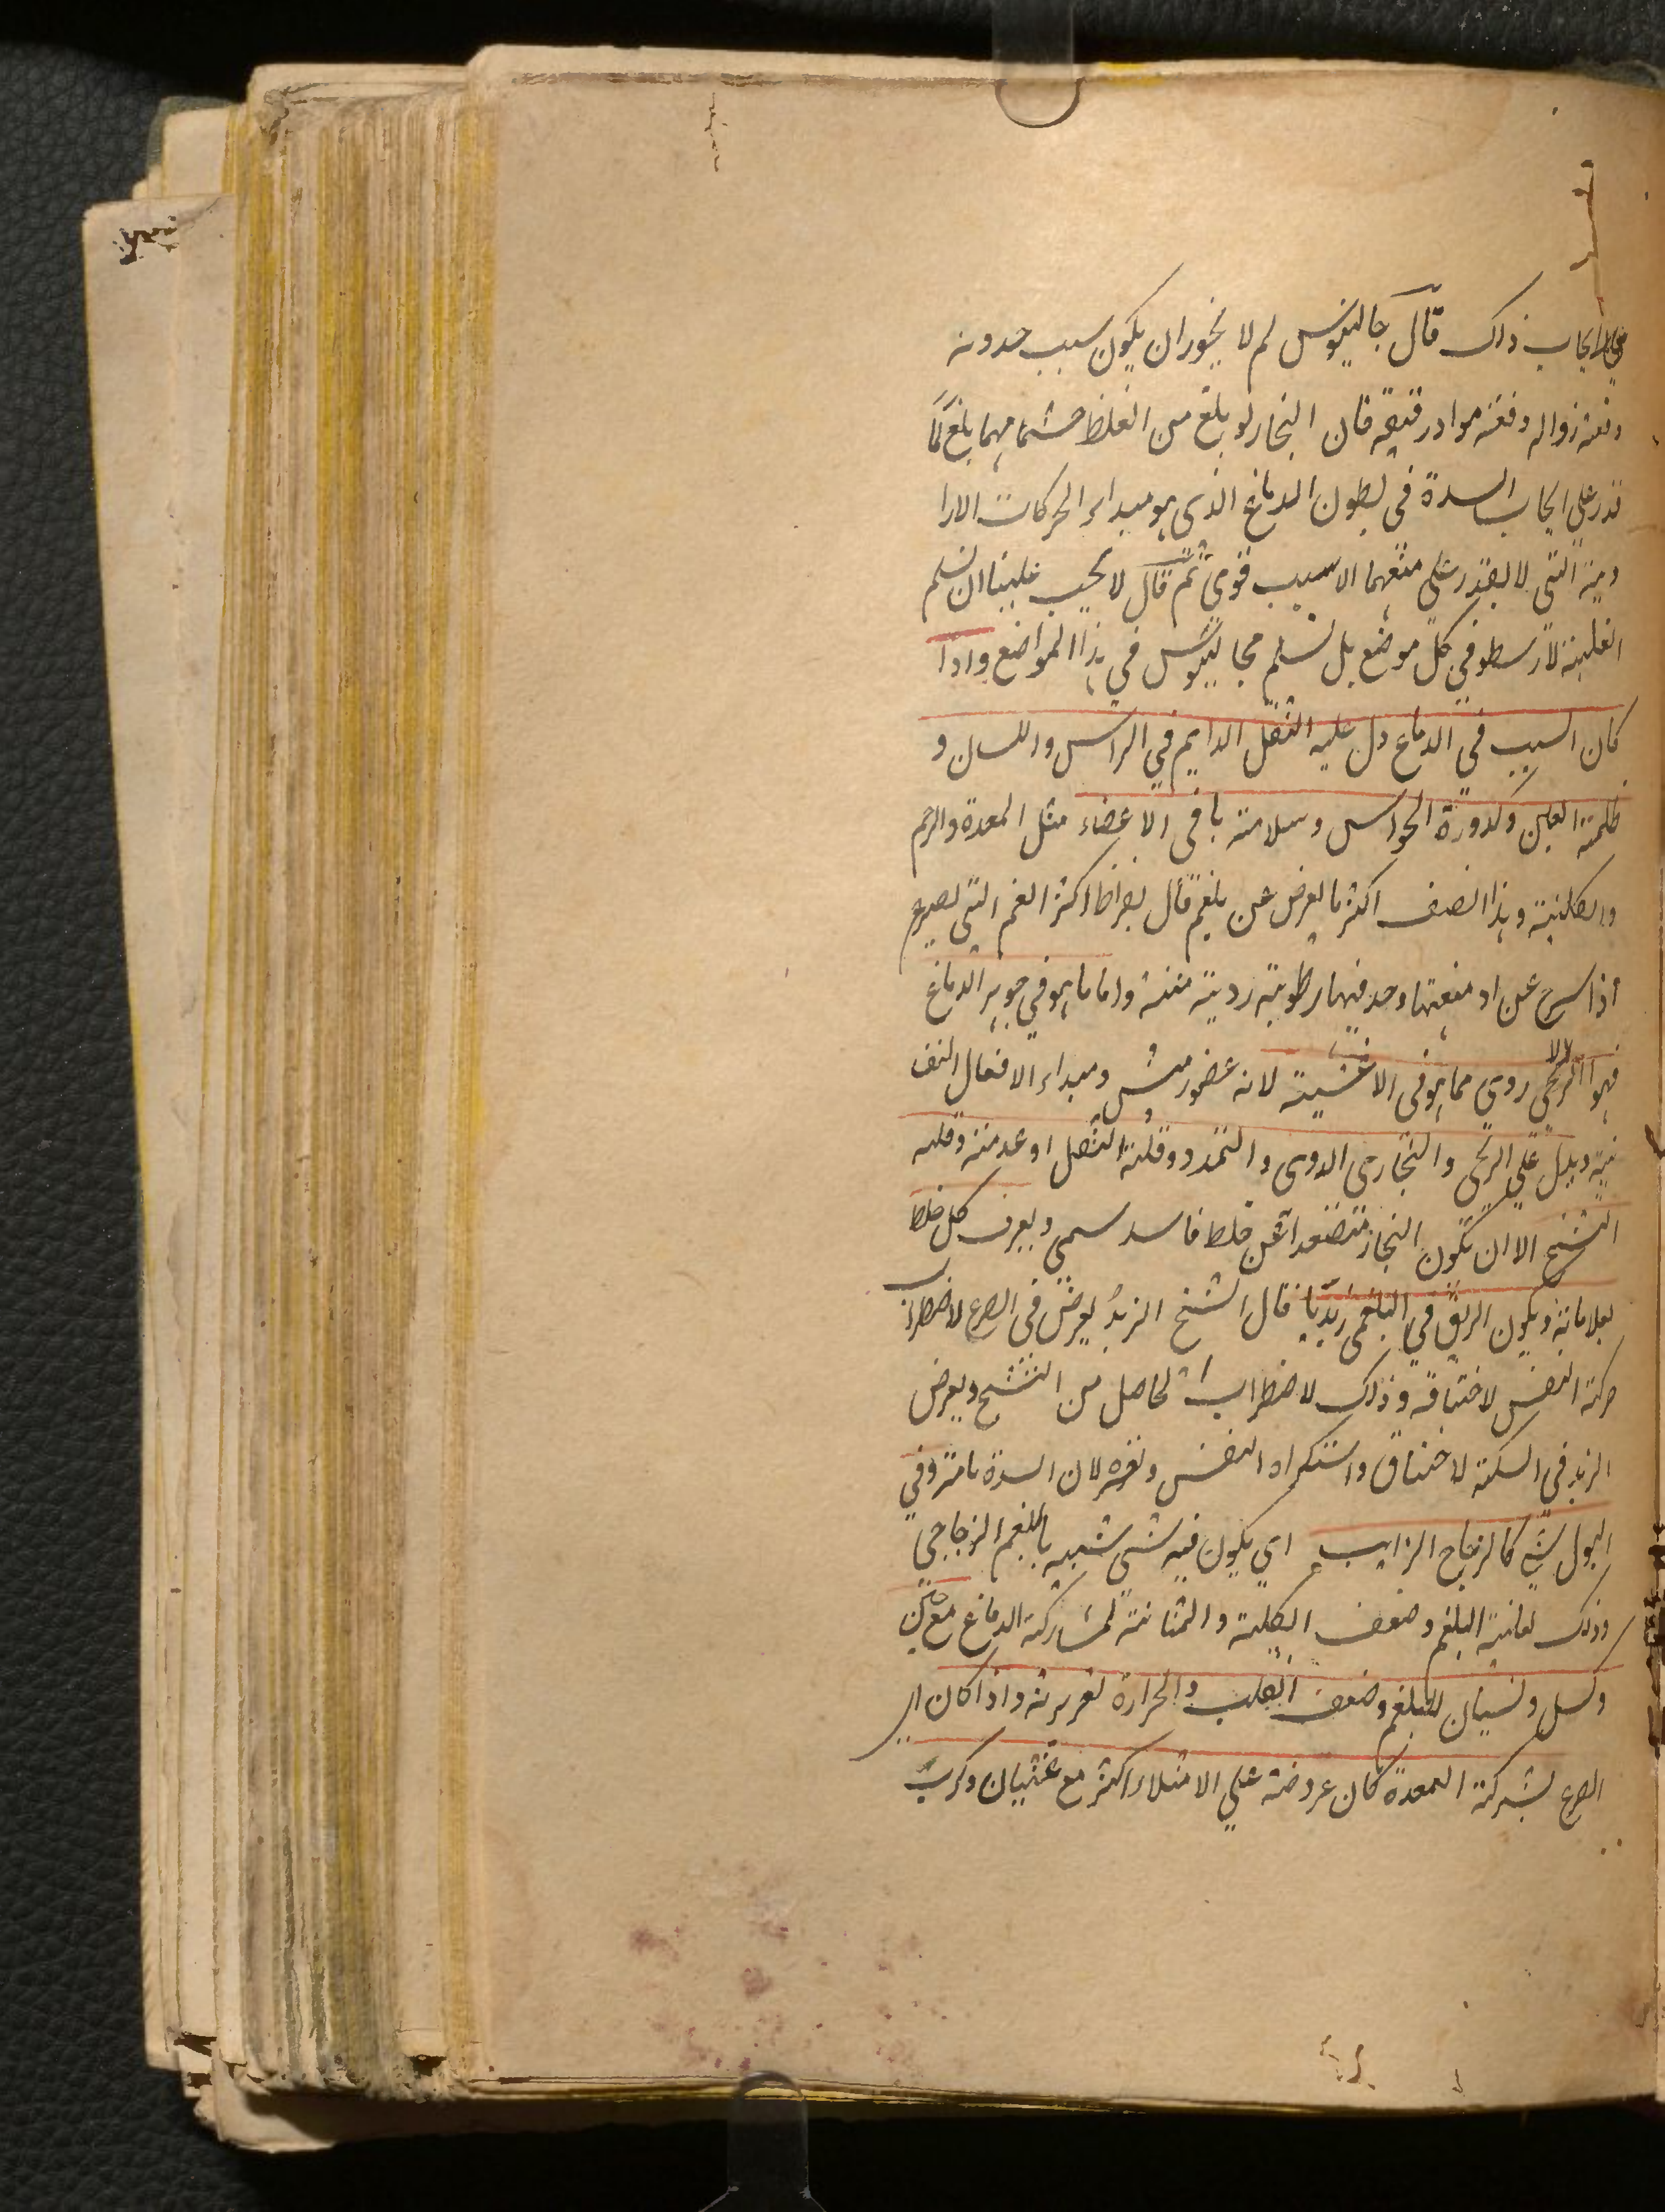 في ايجاب ذلك قال جالينوس لم لا يجوز ان يكون سبب حدوثه
دفعة زواله دفعة مواد رقيقة فان البخار لو بلغ من الغلظ حيثما مهما بلغ لما
قدر علي ايجاب السدة في بطون الدماغ الذي هو مبداء الحركات الارا
دية التي لا يقدر علي منعهما الا سبب قوي ثم قال لا يجب علينا ان نسلم
الغلبة لارسطو في كل موضع بل نسلم لجالينوس في هذا المواضع واذا
كان السبب في الدماغ دل عليه الثقل الدايم في الراس واللسان و
ظلمة العين وكدورة الحواس وسلامة باقي الاعضاء مثل المعدة والرحم
والكلية وهذا الصنف اكثر ما يعرض عن بلغم قال بقراط اكثر الغم التي تصرع
اذا سرح عن ادمغتها وجد فيها رطوبة ردية منتنة واما ما هو في جوهر الدماغ
فهو الريحي ردي مما هو في الاغشية لانه عضو رئيس ومبداء الافعال النف
نية ويدل علي الريحي والبخاري الدوي والتمدد وقلة الثقل او عدمته وقلة
التشنج الا ان تكون البخار متصعدا عن خلط فاسد سمي ويعرف كل خلط
بعلاماته ويكون الريق في البلغمي زبديا قال الشيخ الزبد يعرض في الصرع لاضطراب
حركة النفس لاختناقه وذلك لاضطراب الحاصل من التشنج ويعرض
الزبد في السكتة لاختناق واستكراه النفس ونفره لان السدة تامة وفي
البول شي كالزجاج الزايب اي يكون فيه شي شبيه بالبلغم الزجاجي
وذلك لغلبة البلغم وضعف الكلية والمثانة لمشاركة الدماغ مع جبن
وكسل ونسيان للبلغم وضعف القلب والحرارة الغريزية واذا كان
الصرع بشركة المعدة كان عروضه علي الامتلاء اكثر مع غثيان وكرب